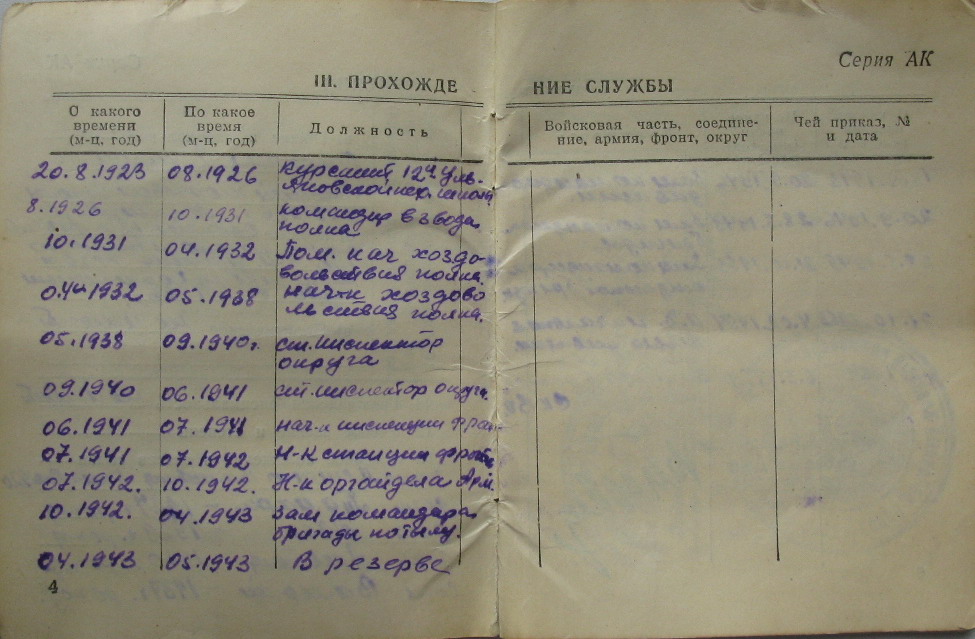 Серия АК
III. ПРОХОЖДЕНИЕ СЛУЖБЫ
С какого времени (м-ц, год)
По какое время (м-ц, год)
Должность
Войсковая часть, соедине-
ние, армия, фронт, округ
Чей приказ, №
и дата
20.8.1923 08.1926 Курсант 12й Уль-
яновской пех. школы
8.1926 10.1931 командир взвода
полка
10.1931 04.1932 Пом. нач хоздо-
вольствия полка.
04.1932 05.1938 нач-к хоздово
льствия полка.
05.1938 09.1940г. ст. инспектор
округа
09.1940 06.1941 ст. инспектор округа
06.1941 07.1941 нач-к инспекции фрон
07.1941 07.1942 Н-к станции
07.1942. 10.1942. Н-к орготдела Арм.
10.1942. 04.1943 Зам командира
бригады по тылу.
04.1943 05.1943 В резерве
4